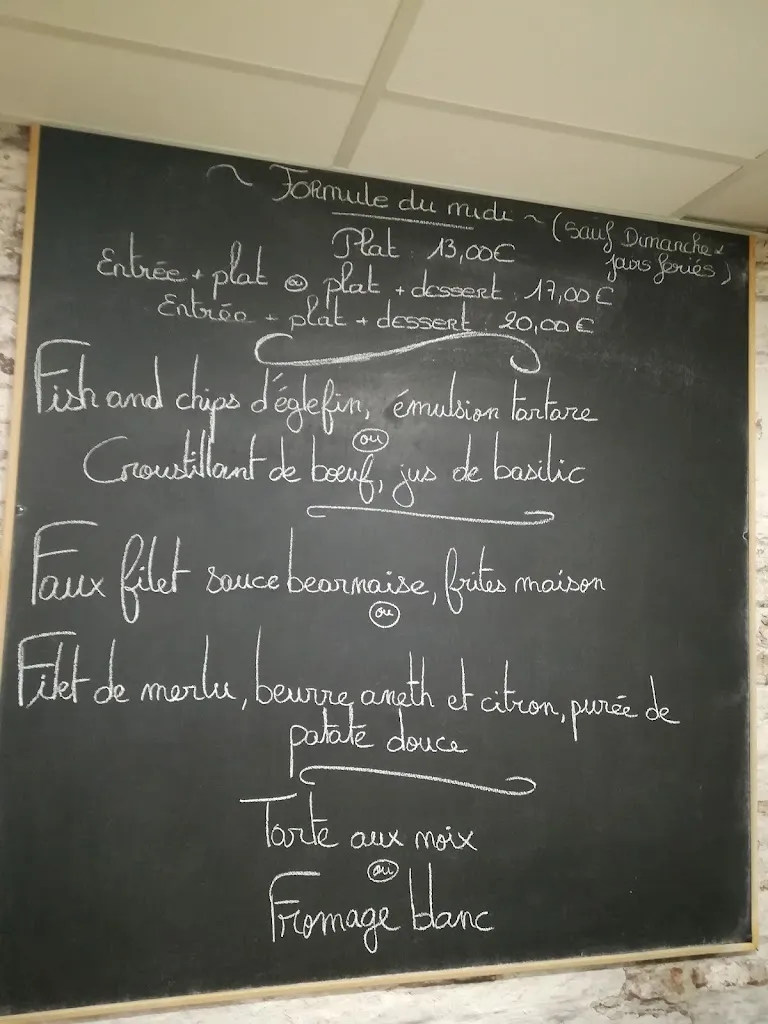 ~ Formule du midi ~ (Sauf Dimanche &
jours feriés)
Plat : 13,00€
Entrée + plat ou plat + dessert : 17,00€
Entrée + plat + dessert : 20,00€
Fish and chips d'églefin, émulsion tartare
ou
Croustillant de boeuf, jus de basilic
Faux filet sauce bearnaise, frites maison
ou
Filet de merlu, beurre aneth et citron, purée de
patate douce
Tarte aux noix
ou
Fromage blanc